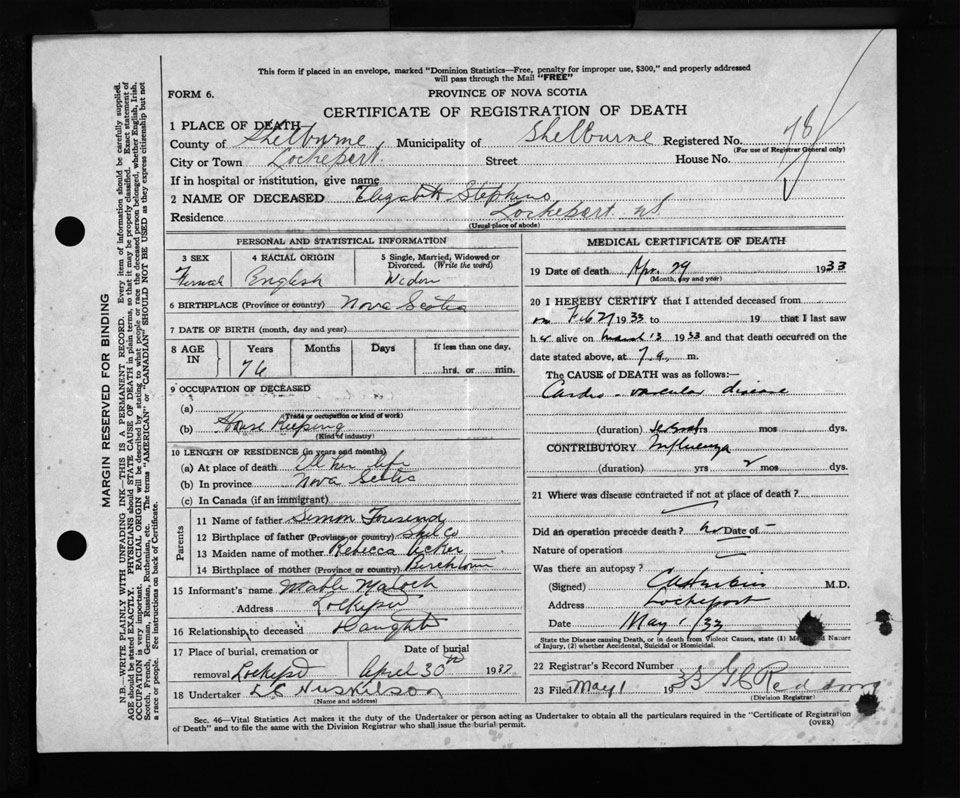 This form if placed in an envelope, marked "Dominion Statistics—Free, penalty for improper use, $300," and properly addressed
will pass through the Mail "FREE"
FORM 6.
PROVINCE OF NOVA SCOTIA
CERTIFICATE OF REGISTRATION OF DEATH
1 PLACE OF DEATH
County of Shelburne Municipality of Shelburne Registered No. 781
(For use of Registrar General only)
City or Town Lockeport Street House No.
If in hospital or institution, give name
2 NAME OF DECEASED Elizabeth Stephens
Residence Lockeport NS
(Usual place of abode)
PERSONAL AND STATISTICAL INFORMATION
3 SEX 4 RACIAL ORIGIN 5 Single, Married, Widowed or Divorced. (Write the word)
Female English Widow
6 BIRTHPLACE (Province or country) Nova Scotia
7 DATE OF BIRTH (month, day and year)
8 AGE IN Years Months Days If less than one day,
76 hrs. or min.
9 OCCUPATION OF DECEASED
(a)
(Trade or occupation or kind of work)
(b) House Keeping
(Kind of industry)
10 LENGTH OF RESIDENCE (in years and months)
(a) At place of death All her life
(b) In province Nova Scotia
(c) In Canada (if an immigrant)
Parents
11 Name of father Simon Tousend
12 Birthplace of father (Province or country) Shel Co
13 Maiden name of mother Rebecca Acker
14 Birthplace of mother (Province or country) Birchtown
15 Informant's name Mable Maloch
Address Lockeport
16 Relationship to deceased Daughter
17 Place of burial, cremation or Date of burial
removal Lockeport April 30th 1933
18 Undertaker Huskilson
(Name and address)
MEDICAL CERTIFICATE OF DEATH
19 Date of death Apr. 29 1933
(Month, day and year)
20 I HEREBY CERTIFY that I attended deceased from
on Feb 27 1933 to 19 that I last saw
her alive on March 13 1933 and that death occurred on the
date stated above, at 7 a. m.
The CAUSE of DEATH was as follows:—
Cardio-vascular disease
(duration) several yrs mos dys.
CONTRIBUTORY Influenza
(duration) yrs 2 mos dys.
21 Where was disease contracted if not at place of death?
Did an operation precede death? No Date of —
Nature of operation
Was there an autopsy?
(Signed) M.D.
Address Lockeport
Date May 1/33
State the Disease causing Death, or in death from Violent Causes, state (1) Means and Nature
of Injury, (2) whether Accidental, Suicidal or Homicidal.
22 Registrar's Record Number
23 Filed May 1 1933
(Division Registrar)
Sec. 46—Vital Statistics Act makes it the duty of the Undertaker or person acting as Undertaker to obtain all the particulars required in the "Certificate of Registration
of Death" and to file the same with the Division Registrar who shall issue the burial permit. (OVER)
MARGIN RESERVED FOR BINDING
N.B.—WRITE PLAINLY WITH UNFADING INK—THIS IS A PERMANENT RECORD. Every item of information should be carefully supplied.
AGE should be stated EXACTLY. PHYSICIANS should STATE CAUSE OF DEATH in plain terms, so that it may be properly classified. Exact statement of
OCCUPATION is very important. RACIAL ORIGIN will be described by stating to what people or race the deceased person belonged, whether English, Irish,
Scotch, French, German, Russian, Ruthenian, etc. The terms "AMERICAN" or "CANADIAN" SHOULD NOT BE USED as they express citizenship but not
a race or people. See instructions on back of Certificate.